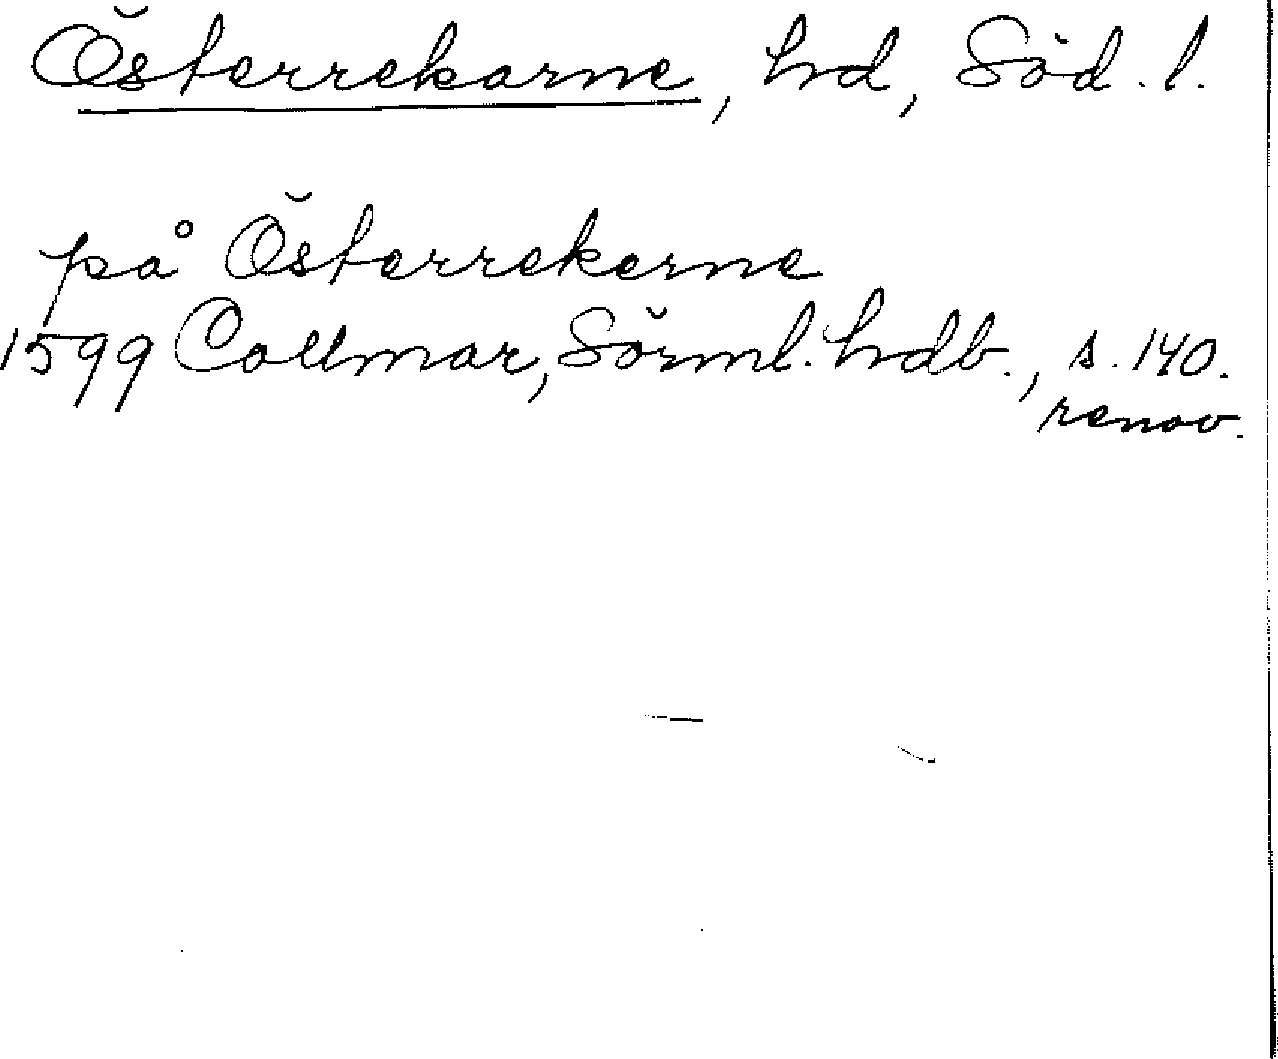 Österrekarne, hd, Söd. l.
på Österrekerne
1599 Collmar, Sörml. hdb., s. 140.
renov.